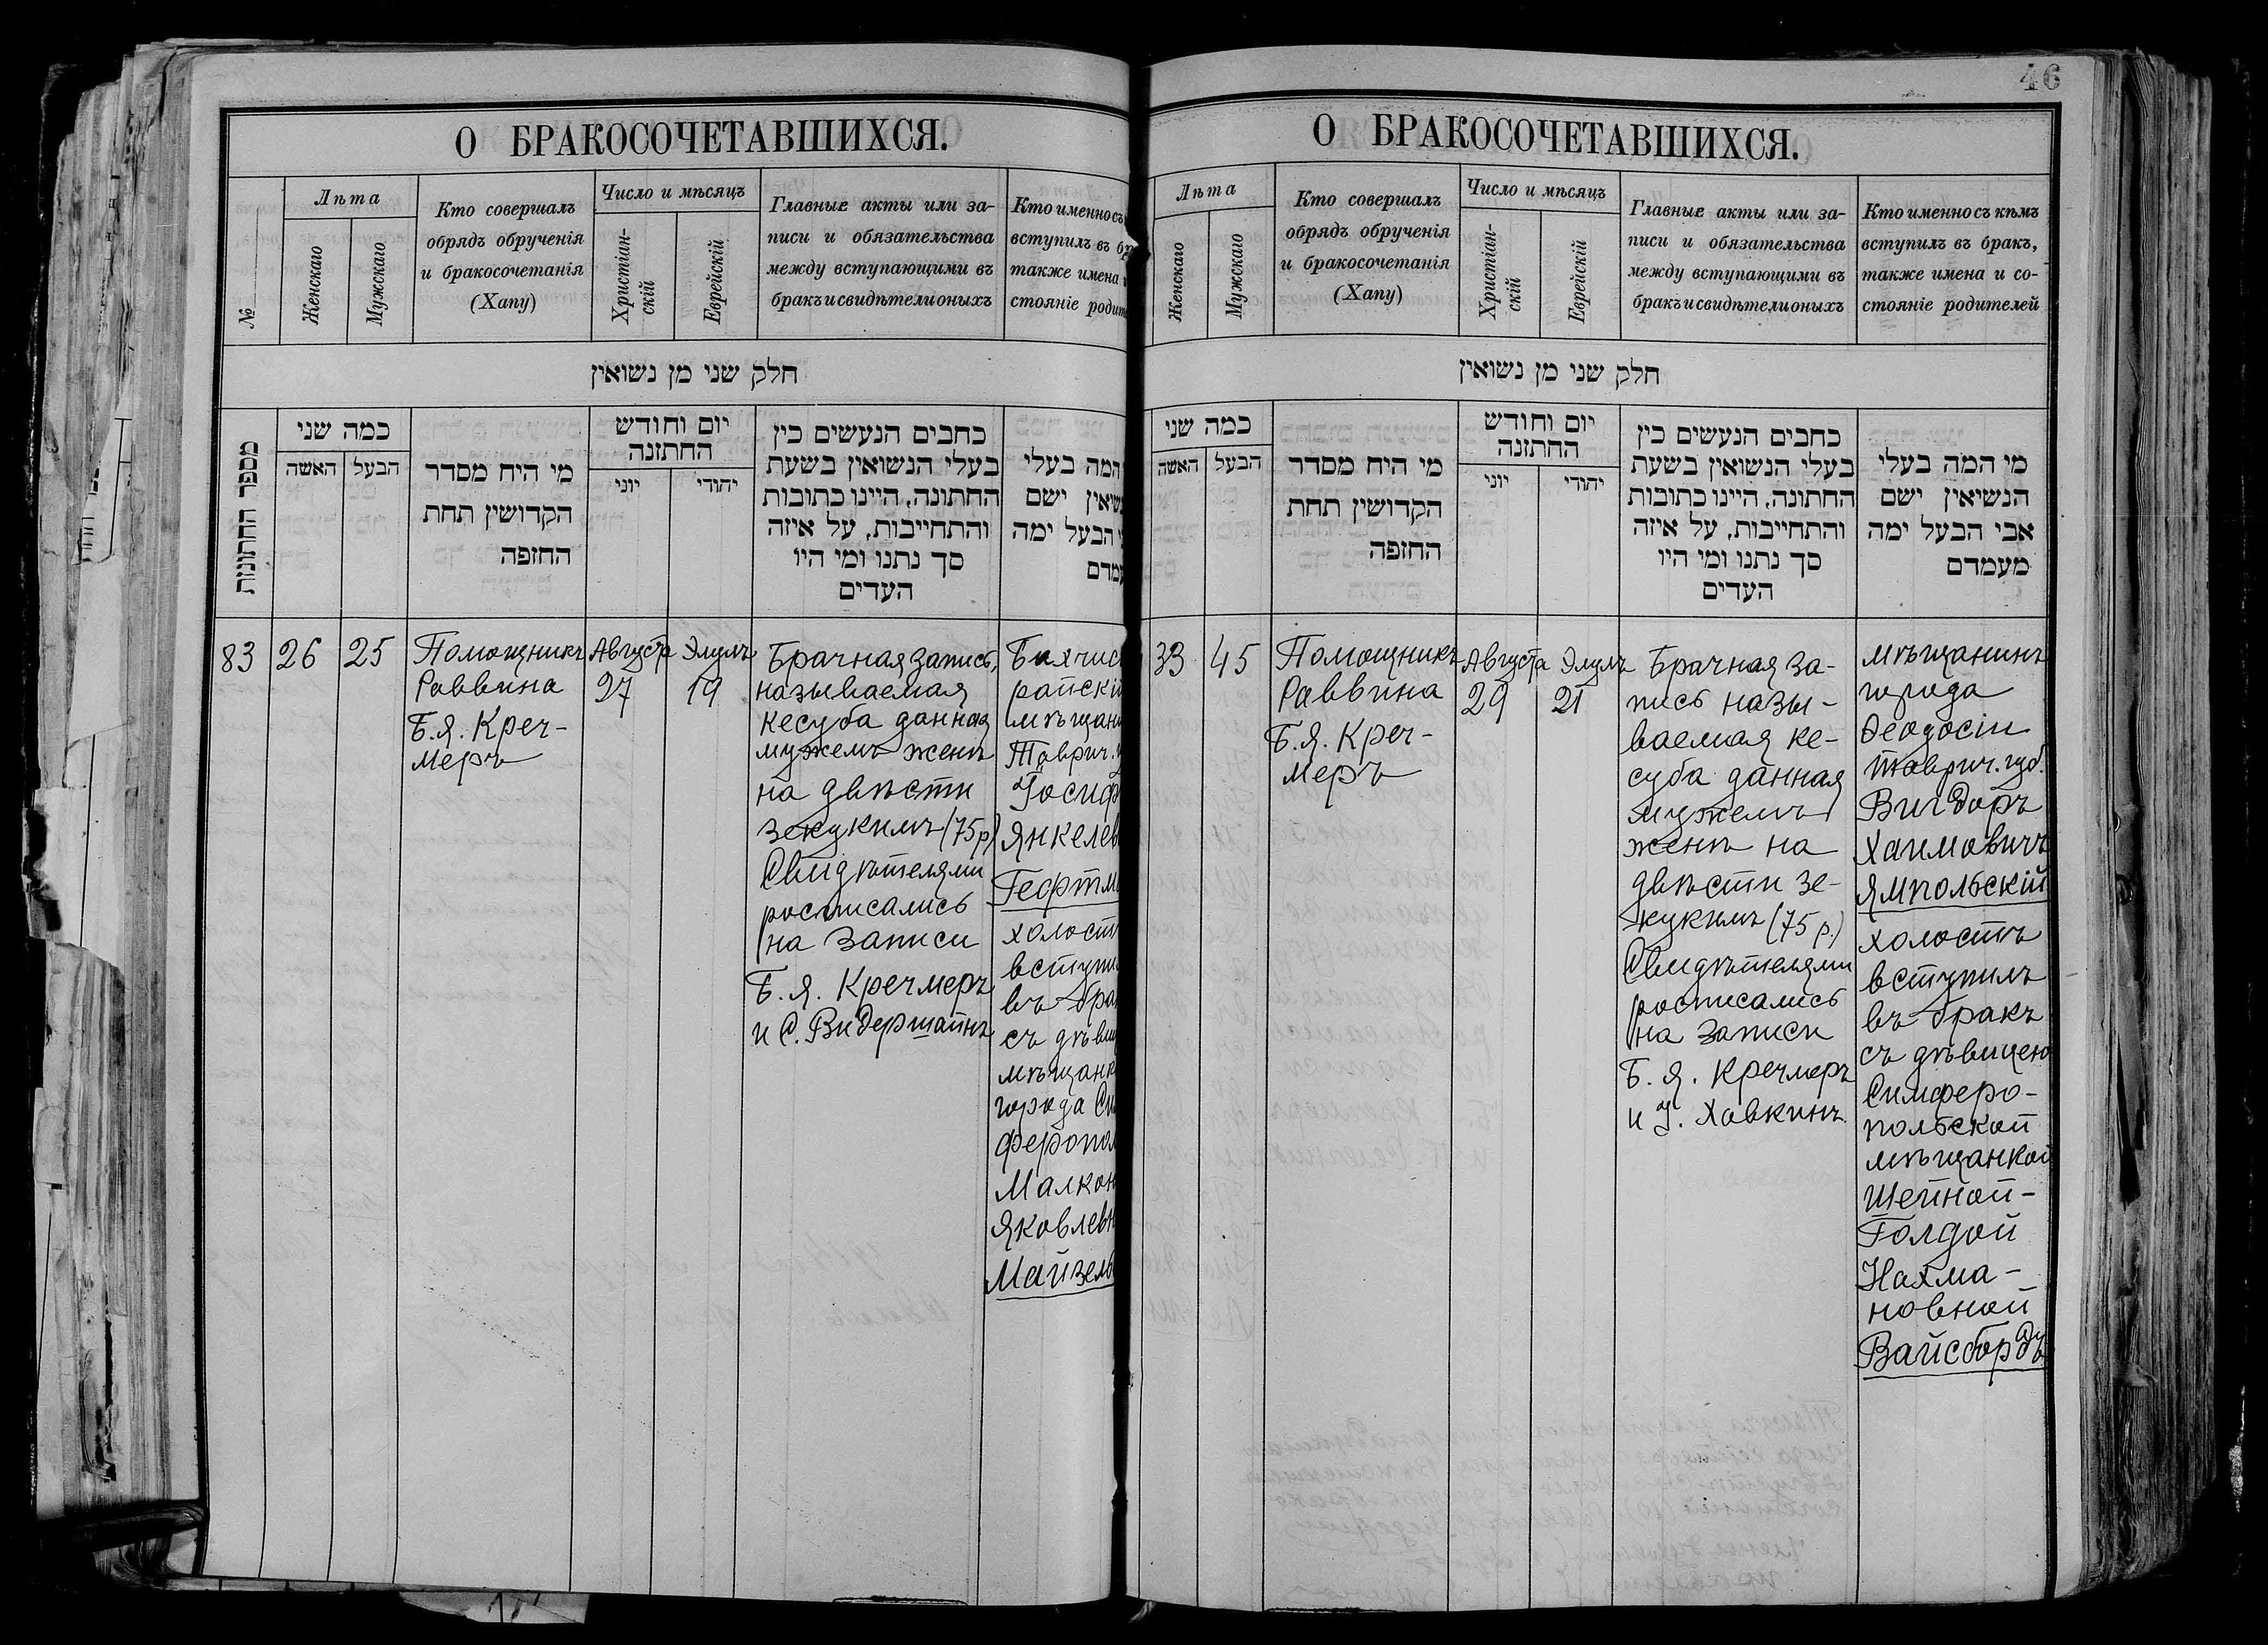 О БРАКОСОЧЕТАВШИХСЯ.
№
Лѣта
Женскаго
Мужскаго
Кто совершалъ
обрядъ обрученія
и бракосочетанія
(Хапу)
Число и мѣсяцъ
Христіан-
скій
Еврейскій
Главные акты или за-
писи и обязательства
между вступающими въ
бракъ и свидѣтели оныхъ
Кто именно съ
вступилъ въ бр
также имена и
стояніе родит
חלק שני מן נשואין
מספר החתונות
כמה שני
האשה
הבעל
מי היח מסדר
הקדושין תחת
החזפה
יום וחודש
החתזנה
יוני
יהודי
כחבים הנעשים כין
בעלי הנשואין בשעת
החתונה, היינו כתובות
והתחייבות, על איזה
סך נתנו ומי היו
העדים
המה בעלי
שיאין ישם
י הבעל ימה
עמדם
83
26
25
Помощникъ
Раввина
Б.Я. Креч-
меръ
Августа
27
Элулъ
19
Брачная запись,
называемая
кесуба данная
мужемъ женѣ
на двѣсти
зекукимъ (75 р)
Свидѣтелями
росписались
на записи
Б. Я. Кречмеръ
и С. Видершайнъ
Бахчис
райскій
мѣщани
Таврич. г
Іосиф
Янкелев
Гефтм
холостъ
вступи
въ бра
съ дѣви
мѣщанк
города Си
феропол
Малкою
Яковлевн
Майзель
46
О БРАКОСОЧЕТАВШИХСЯ.
Лѣта
Женскаго
Мужскаго
Кто совершалъ
обрядъ обрученія
и бракосочетанія
(Хапу)
Число и мѣсяцъ
Христіан-
скій
Еврейскій
Главные акты или за-
писи и обязательства
между вступающими въ
бракъ и свидѣтели оныхъ
Кто именно съ кѣмъ
вступилъ въ бракъ,
также имена и со-
стояніе родителей
חלק שני מן נשואין
כמה שני
האשה
הבעל
מי היח מסדר
הקדושין תחת
החזפה
יום וחודש
החתזנה
יוני
יהודי
כחבים הנעשים כין
בעלי הנשואין בשעת
החתונה, היינו כתובות
והתחייבות, על איזה
סך נתנו ומי היו
העדים
מי המה בעלי
הנשיאין ישם
אבי הבעל ימה
מעמדם
33
45
Помощникъ
Раввина
Б.Я. Креч-
меръ
Августа
29
Элулъ
21
Брачная за-
пись назы-
ваемая ке-
суба данная
мужемъ
женѣ на
двѣсти зе-
кукимъ (75 р.)
Свидѣтелями
росписались
на записи
Б. Я. Кречмеръ
и У. Хавкинъ
мѣщанинъ
города
Ѳеодосіи
Таврич. губ.
Вигдоръ
Хаимовичъ
Ямпольскій
холостъ
вступилъ
въ бракъ
съ дѣвицею
Симферо-
польской
мѣщанкой
Шейной-
Голдой
Нахма-
новной
Вайсбордъ